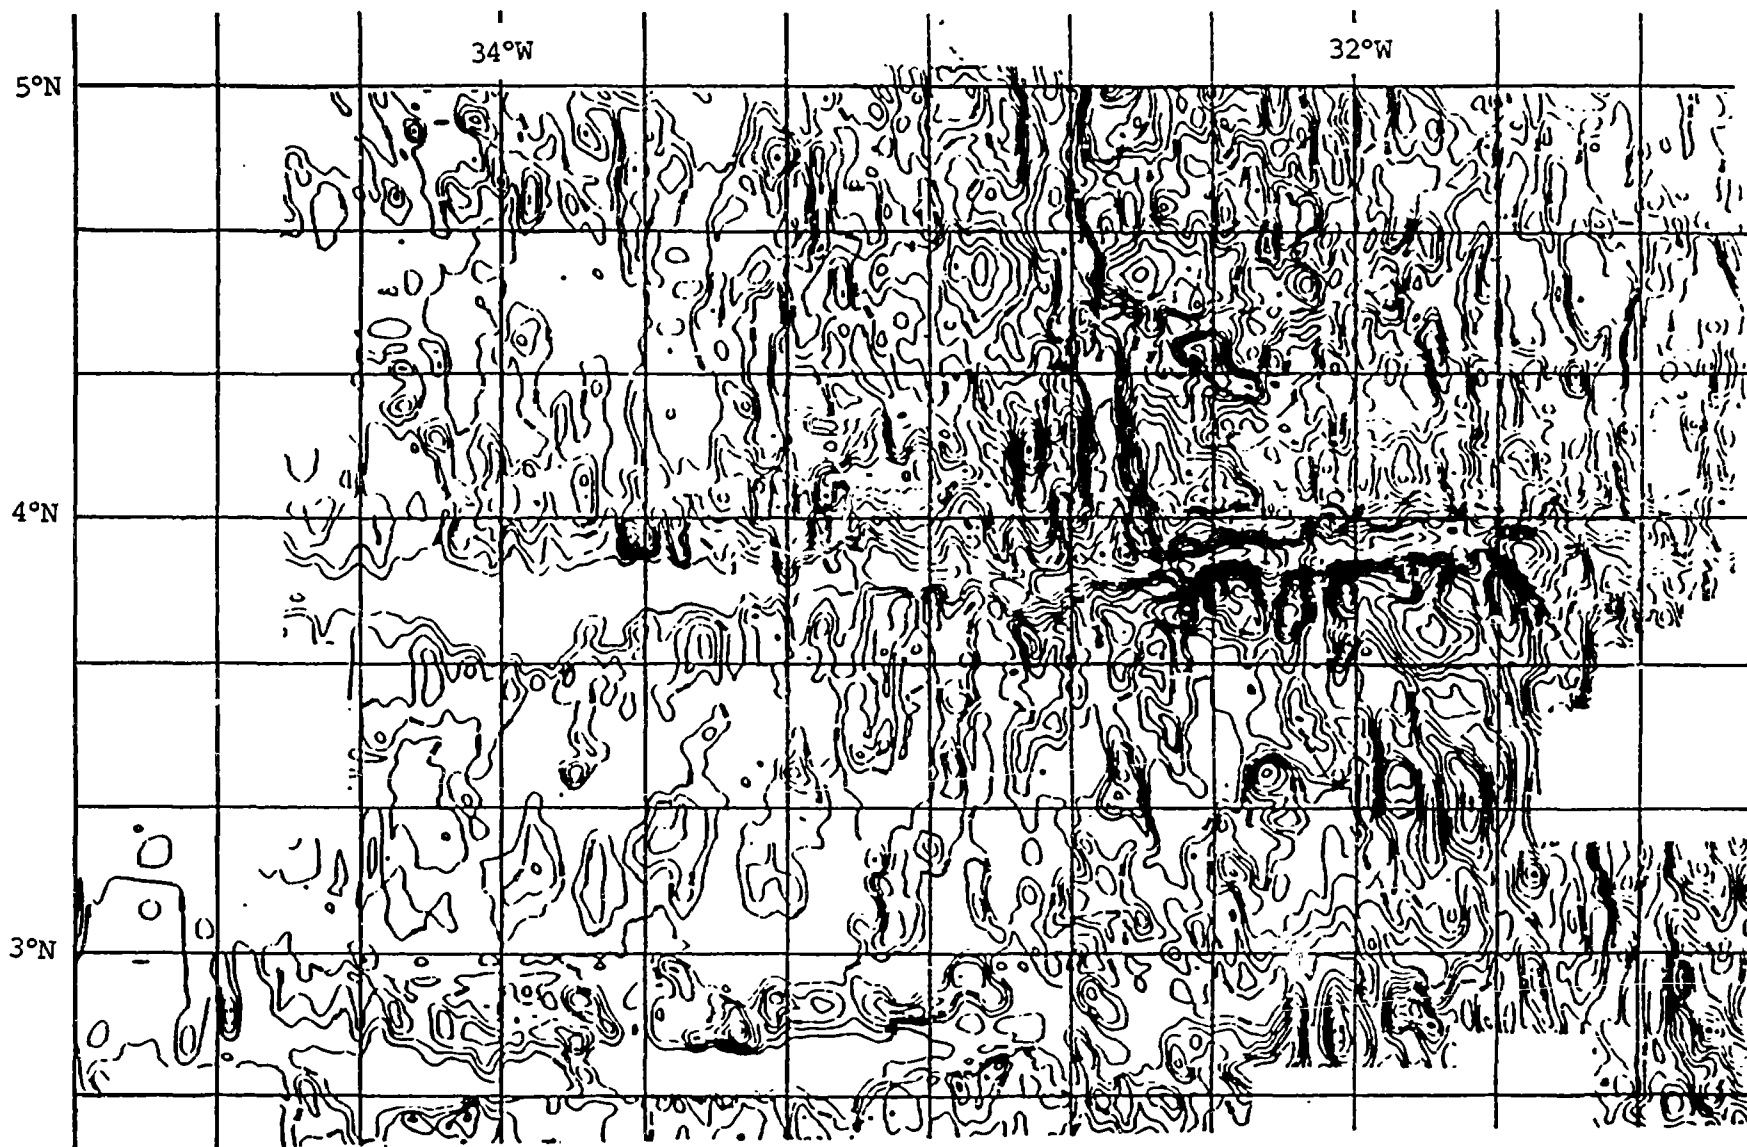 34°W
32°W
5°N
4°N
3°N